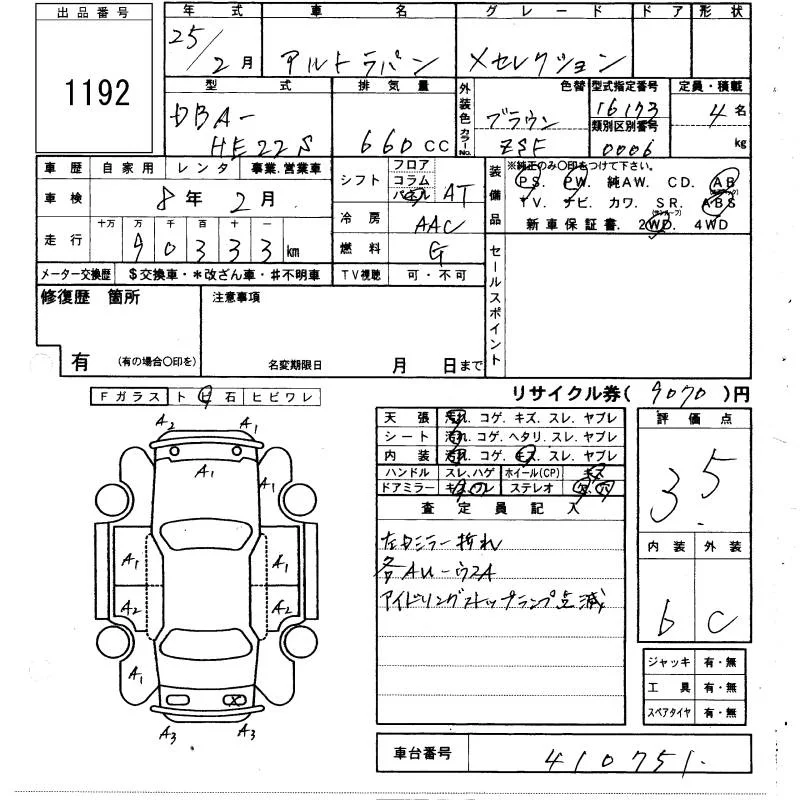 出品番号
1192
年式 車名 グレード ドア 形状
25/2月 アルトラパン Xセレクション
型式 排気量 外装色 色替 型式指定番号 定員・積載
DBA-
HE22S 660CC カラーNo. ブラウン ZSF 16173 4名
類別区別番号
0006 kg
車歴 自家用 レンタ 事業.営業車
車検 8年2月
走行 十万 万 千 百 十 一
90333km
メーター交換歴 $交換車・*改ざん車・#不明車
シフト フロア コラム パネル AT
冷房 AAC
燃料 G
TV視聴 可・不可
装備品 ※純正のみ〇印をつけて下さい。
PS. PW. 純AW. CD. AB
TV. ナビ. カワ. SR. ABS
(サンルーフ)
新車保証書. 2WD. 4WD
セールスポイント
修復歴 箇所
有 (有の場合〇印を)
注意事項
名変期限日 月 日まで
リサイクル券( 9070 )円
Fガラス トビ石 ヒビワレ
A2 A2
A1
A1 A1
A1 A1
A2 A2
A1 A1
A3 A3
天張 汚れ. コゲ. キズ. スレ. ヤブレ
シート 汚れ. コゲ. ヘタリ. スレ. ヤブレ
内装 汚れ. コゲ. キズ. スレ. ヤブレ
ハンドル スレ.ハゲ ホイール(CP) キズ
ドアミラー キズ.ワレ ステレオ
査定員記入
左ドミラー折れ
各AU-ウスA
アイドリングストップランプ点滅
評価点
3.5
内装 外装
b C
ジャッキ 有・無
工具 有・無
スペアタイヤ 有・無
車台番号 410751.